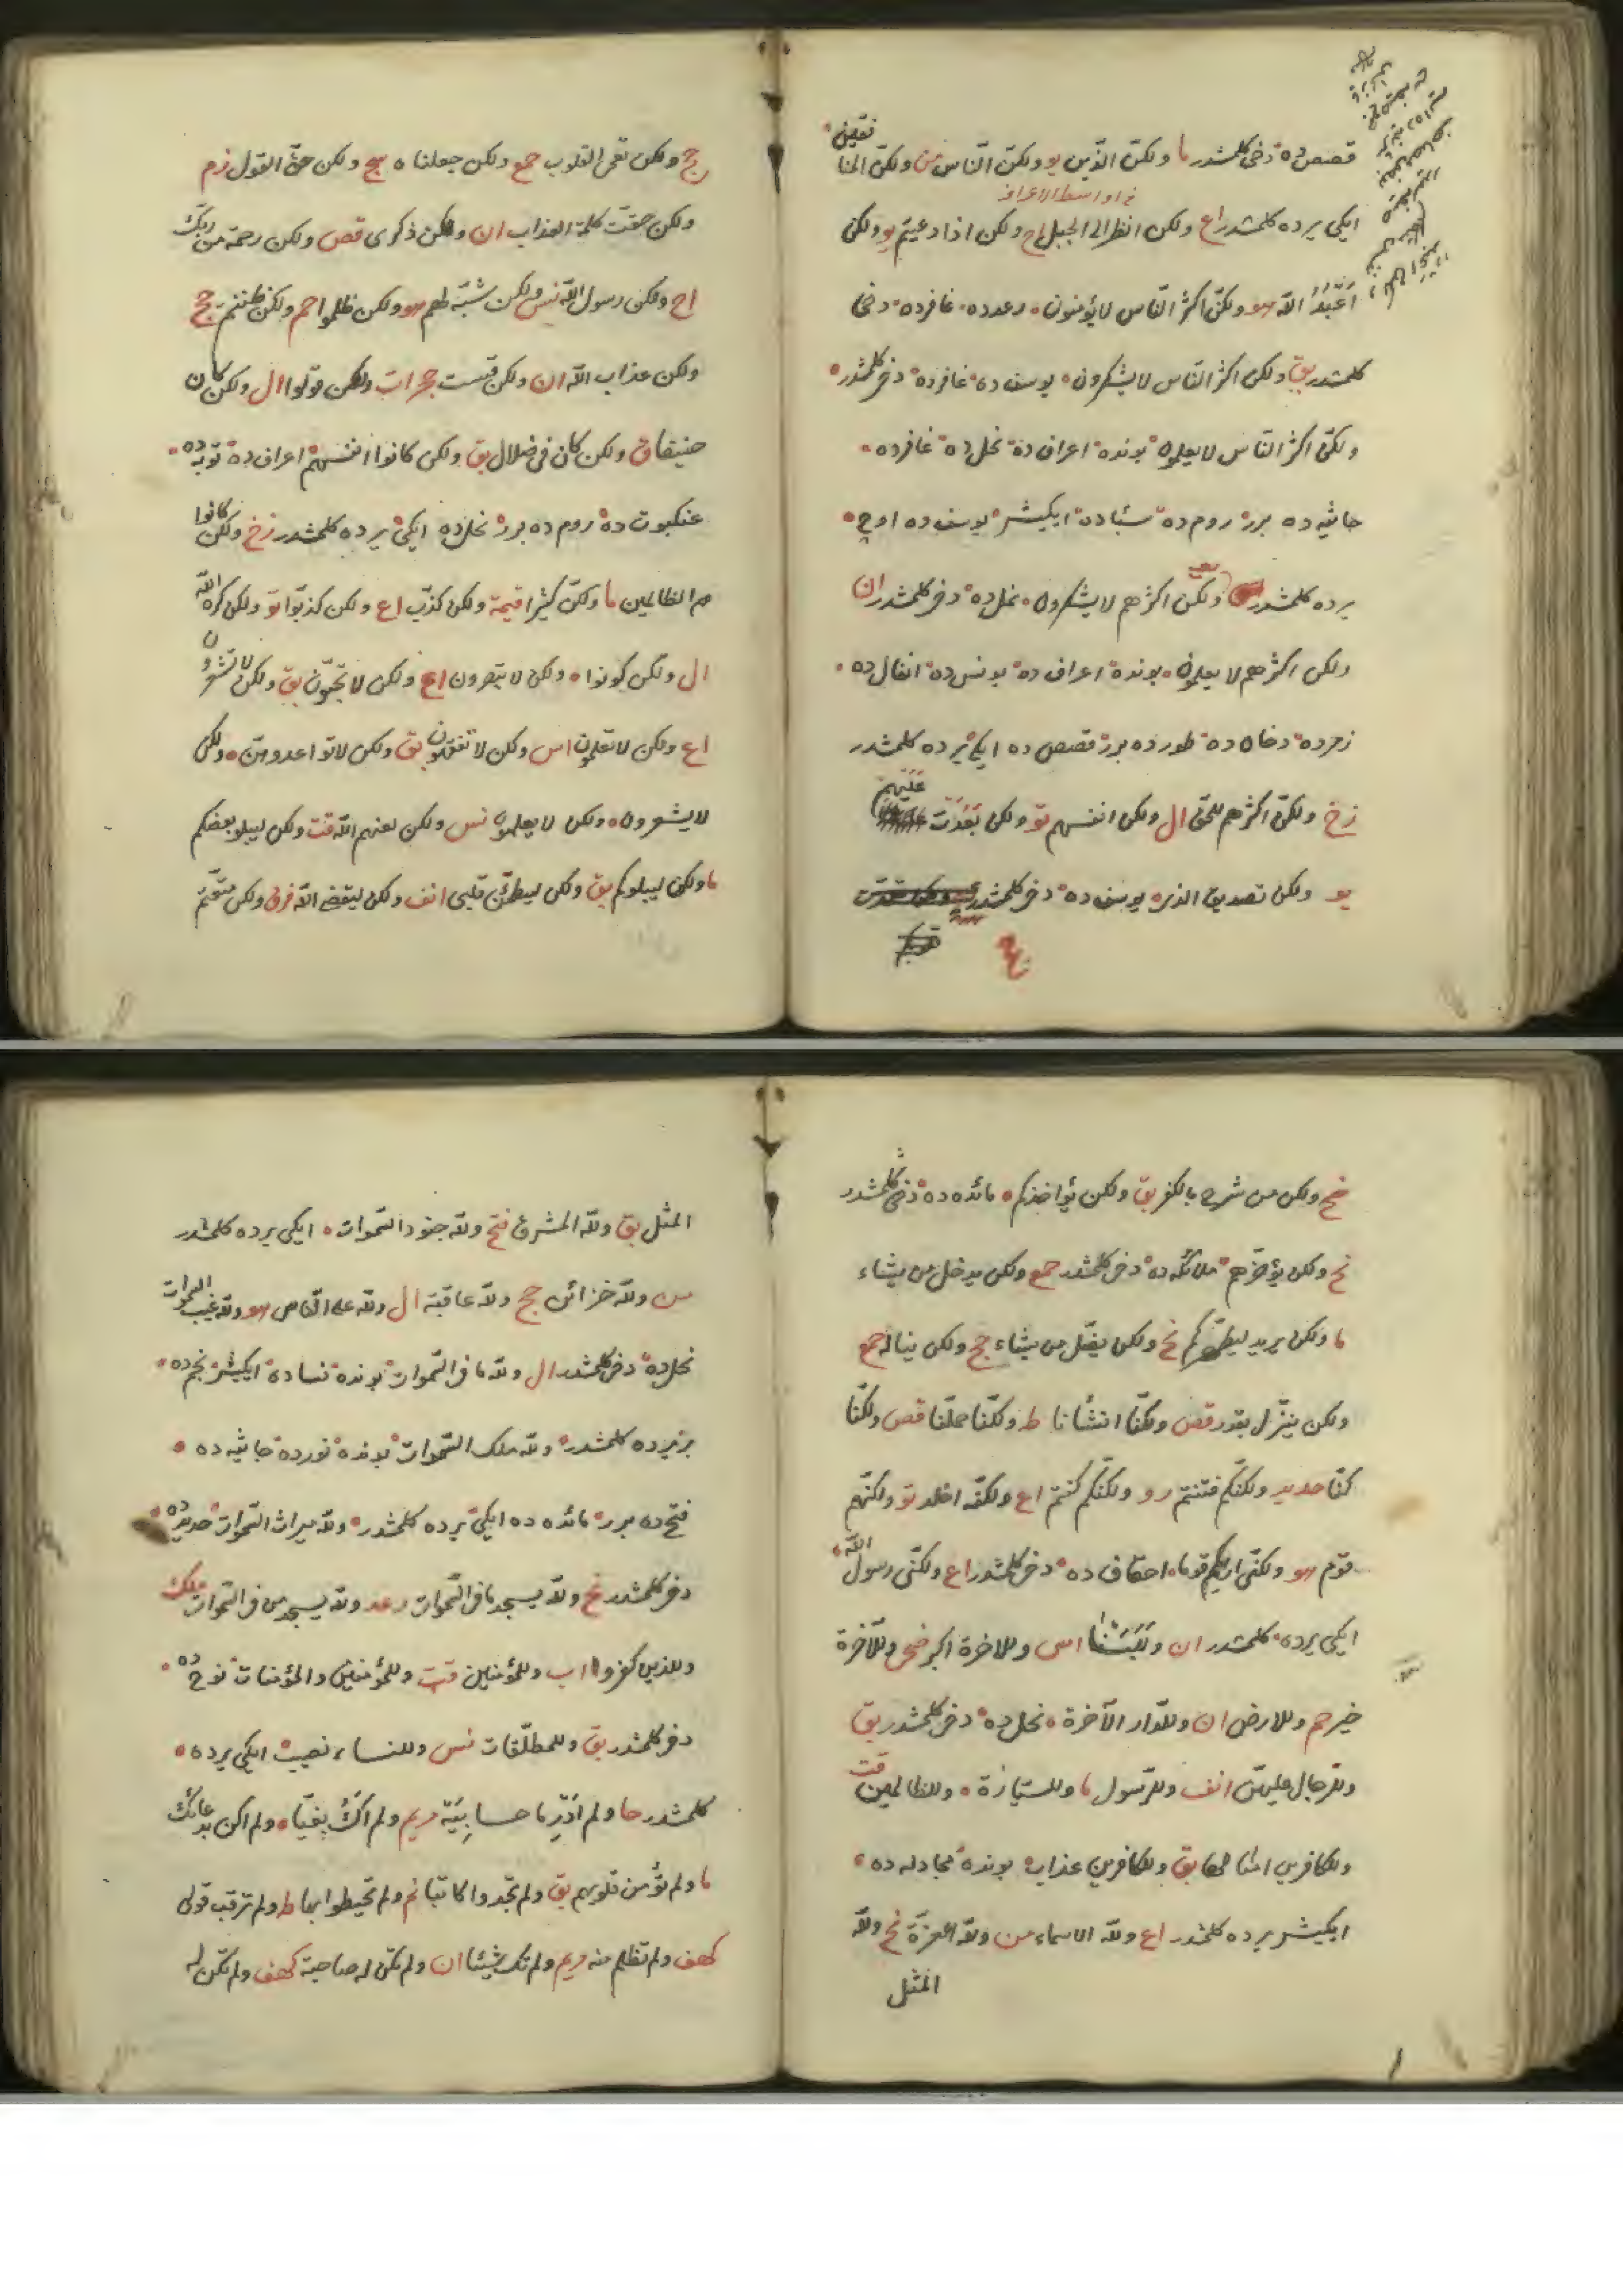 قصص ده دخى كلمشدر ما ولكنّ الذين يو ولكنّ النّاس من ولكنّ المنا
فقين
ايكى يرده كلمشدر اع ولكن انظر الى الجبل اح ولكن اذا دعيتم يو ولكن
اَعْبُدُ الله هو ولكنّ اكثر النّاس لا يؤمنون رعدده غافرده دخى
كلمشدر بق ولكن اكثر النّاس لا يشكرون يوسف ده غافرده دخى كلمشدر
ولكنّ اكثر النّاس لا يعلمون بونده اعراف ده نحل ده غافرده
جاثيه ده برر روم ده سباده ايكيشر يوسف ده اوچ
يرده كلمشدر ولكن اكثرهم لا يشكرون نمل ده دخى كلمشدر ان
ولكن اكثرهم لا يعلمون بونده اعراف ده يونس ده انفال ده
زمرده دخان ده طورده برر قصص ده ايكى يرده كلمشدر
زخ ولكنّ اكثرهم للحق ال ولكن انفسهم تو ولكن بَعُدَت عَلَيْهِمْ
يو ولكن تصديق الذى يوسف ده دخى كلمشدر
حج ولكن تعمى القلوب حمع ولكن جعلناه سج ولكن حقّ القول زم
ولكن حقّت كلمة العذاب ان ولكن ذكرى قص ولكن رحمة من ربّك
اح ولكن رسول الله نس ولكن شبّه لهم هو ولكن ظلموا حم ولكن ظننتم حج
ولكن عذاب الله ان ولكن قست حجرات ولكن قولوا ال ولكن كان
حنيفا ق ولكن كان فى ضلال بق ولكن كانوا انفسهم اعراف ده توبه ده
عنكبوت ده روم ده برر نحل ده ايكى يرده كلمشدر زخ ولكن كانوا
هم الظالمين ما ولكنّ كثيرا قيمة ولكن كذّب اع ولكن كذبوا تو ولكن كره الله
ال ولكن كونوا ولكن لا تبصرون اع ولكن لا تحبّون بق ولكن لا تشعرون
اع ولكن لا تعلمون اس ولكن لا تفقهون بق ولكن لا تواعدوهنّ ولكن
لا يشعرون ولكن لا يعلمون نس ولكن لعنهم الله قت ولكن ليبلو بعضكم
ما ولكن ليبلوكم بق ولكن ليطمئن قلبى انف ولكن ليقضى الله فرق ولكن متّعتهم
نح ولكن من شرح بالكفر بق ولكن يؤاخذكم مائده ده دخى كلمشدر
نح ولكن يؤخرهم ملائكه ده دخى كلمشدر حمع ولكن يدخل من يشاء
ما ولكن يريد ليطهّركم نح ولكن يضلّ من يشاء حج ولكن يناله حمع
ولكن ينزّل بقدر قص ولكنّا انشأنا طه ولكنّا حملنا قص ولكنّا
كنّا حديد ولكنّكم فتنتم رو ولكنّكم كنتم اع ولكنّه اخلد تو ولكنّهم
قوم هو ولكنّى اريكم قوما احقاف ده دخى كلمشدر اع ولكنّى رسول الله
ايكى يرده كلمشدر ان وَلَلَبَسْنَا اس وللاخرة اكبر ضحى وللآخرة
خير حم وللارض ان وللدّار الآخرة نحل ده دخى كلمشدر بق
وللرّجال عليهنّ انف وللرّسول ما وللسيّارة وللظالمين قت
وللكافرين امثالها بق وللكافرين عذاب بونده مجادله ده
ايكيشر يرده كلمشدر اع ولله الاسماء من ولله العزّة نح ولله
المثل
المثل بق ولله المشرق فتح ولله جنود السّموات ايكى يرده كلمشدر
من ولله خزائن حج ولله عاقبة ال ولله على النّاس هو ولله غيب السّموات
نحل ده دخى كلمشدر ال ولله ما فى السّموات بونده نساده ايكيشر نجم ده
بر يرده كلمشدر ولله ملك السّموات بونده نورده جاثيه ده
فتح ده برر مائده ده ايكى يرده كلمشدر ولله ميراث السّموات حديد ده
دخى كلمشدر نح ولله يسجد ما فى السّموات رعد ولله يسجد من فى السّموات ملك
وللذين كفروا اب وللمؤمنين قت وللمؤمنين والمؤمنات نوح ده
دخى كلمشدر بق وللمطلّقات نس وللنساء نصيب ايكى يرده
كلمشدر حا ولم اَدْرِ ما حسابيَه مريم ولم اَكُ بغيّا ولم اكن بدعائك
ما ولم تؤمن قلوبهم بق ولم تجدوا كاتبا نم ولم تحيطوا بها طه ولم ترقب قولى
كهف ولم تظلم منه مريم ولم تك شيئا ان ولم تكن له صاحبة كهف ولم تكن له